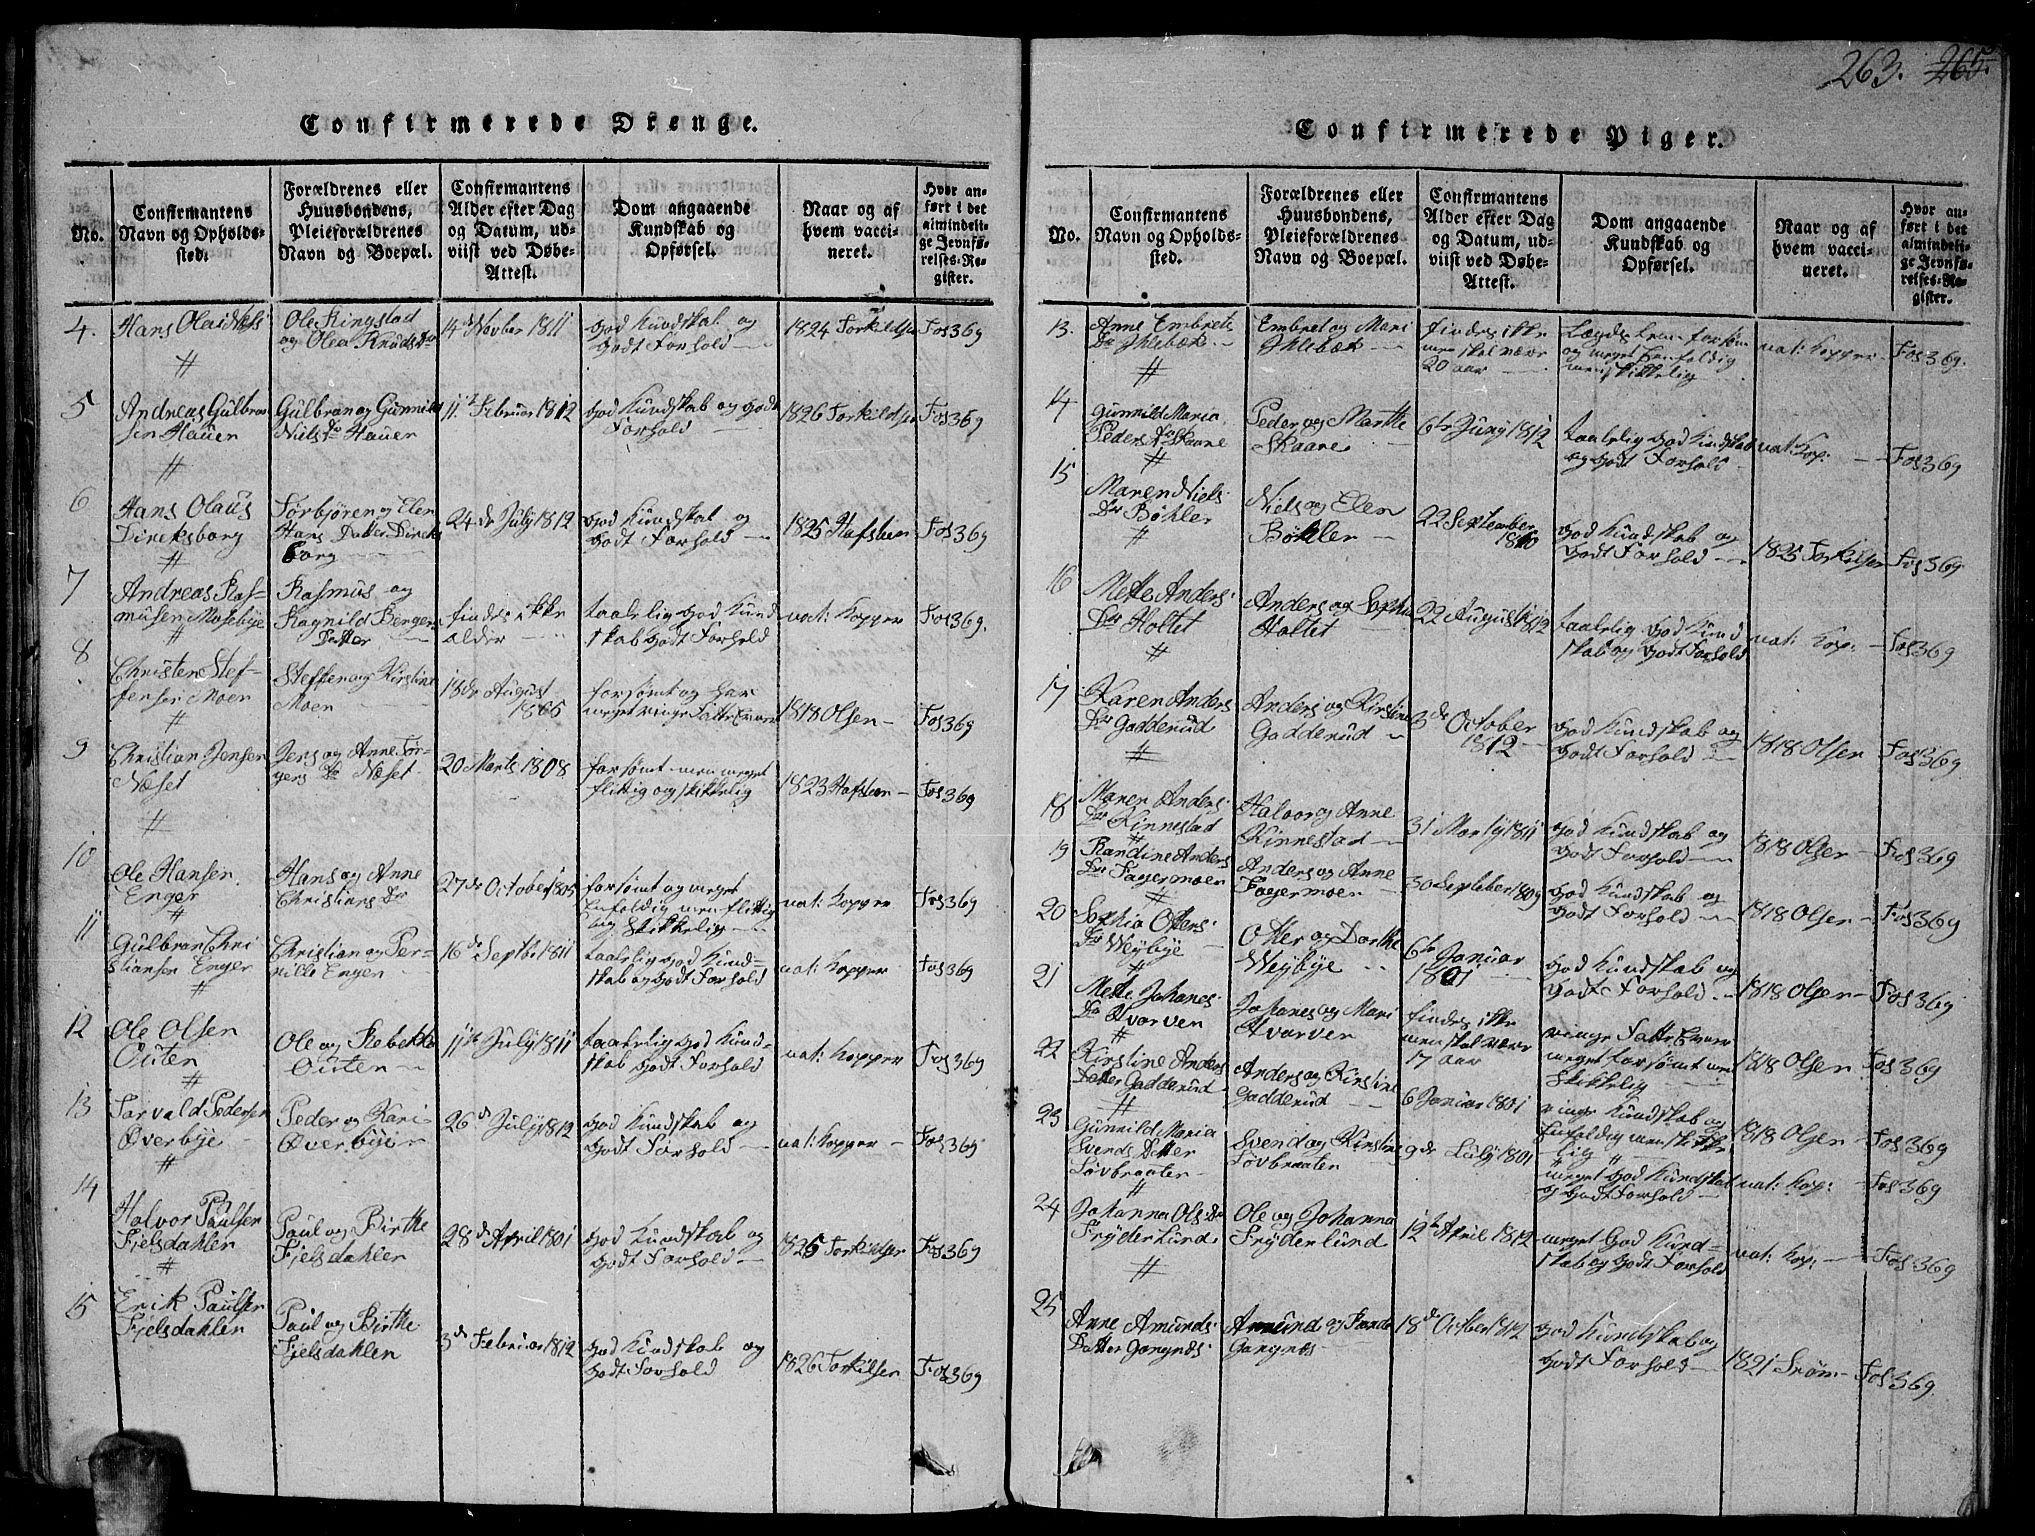 263. 265.
Confirmerede Drenge.
No.
Confirmantens
Navn og Opholds-
sted.
Forældrenes eller
Huusbondens,
Pleieforældrenes
Navn og Boepæl.
Confirmantens
Alder efter Dag
og Datum, ud-
viist ved Døbe-
Attest.
Dom angaaende
Kundskab og
Opførsel.
Naar og af
hvem vacci-
neret.
Hvor an-
ført i det
almindeli-
ge Jevnfø-
relses-Re-
gister.
4.
Hans Olai
Ole Ringstad
og Olea Knuds Dr
14 d Novber 1811
God Kundskab og
godt Forhold
1824 Torkildsen
Fos 369
5
Andreas Gulbran
sen Hauer
Gulbran og Gunnild
Niels Dr Hauer
11te Februar 1812
God Kundskab og godt
Forhold
1826 Torkildsen
Fos 369
6
Hans Olaus
Direksborg
Torbjøren og Elen
Hans Datter Direks
borg
24 de July 1812
God Kundskab og
godt Forhold
1825 Hafsteen
Fos 369
7
Andreas Ras-
musen Mosebye
Rasmus og
Ragnild Bergers
Datter
findes ikke
alder
taalelig god Kund
skab godt Forhold
nat: Kopper
Fos 369.
8
Christen Stef-
fensen Moen
Steffen og Kirstine
Moen
18 de August
1805
forsømt og har
meget ringe Fatte Evner
1818 Olsen
Fos 369
9
Christian Jensen
Næset
Jens og Anne Tor-
gers Dr Næset
20 Marts 1808
forsømt men meget
flittig og skikkelig
1823 Hafsteen
Fos 369
10
Ole Hansen
Enger
Hans og Anne
Christians Dr
27 de October 1805
forsømt og meget
Enfoldig men flittig
og skikkelig
nat: Kopper
Fos 369
11
Gulbran Chri
stiansen Enger
Christian og Per-
nille Enger
16 de Septbr 1811
taalelig god Kund-
skab og godt Forhold
nat: Kopper
Fos 369
12
Ole Olsen
Outen
Ole og Rebekka
Outen
11te July 1811
taalelig god Kund-
skab godt Forhold
nat: Kopper
Fos 369
13
Torvald Pedersen
Øverbye
Peder og Kari
Øverbye
26 de July 1812
God Kundskab og
godt Forhold
nat: Kopper
Fos 369
14
Halvor Paulsen
Fjelsdahlen
Paul og Birthe
Fjelsdahlen
28 de April 1801
God Kundskab og
godt Forhold
1825 Torkildsen
Fos 369
15
Erik Paulsen
Fjelsdahlen
Paul og Birthe
Fjelsdahlen
3 de Februar 1812
God Kundskab og
godt Forhold
1826 Torkilsen
Fos 369
Confirmerede Piger.
No.
Confirmantens
Navn og Opholds-
sted.
Forældrenes eller
Huusbondens,
Pleieforældrenes
Navn og Boepæl.
Confirmantens
Alder efter Dag
og Datum, ud-
viist ved Døbe-
Attest.
Dom angaaende
Kundskab og
Opførsel.
Naar og af
hvem vacci-
neret.
Hvor an-
ført i det
almindeli-
ge Jevnfø-
relses-Re-
gister.
13.
Anne Embrets
Dr Iklebæk
Embret og Mari
Iklebæk
findes ikke
men skal være
20 aar
og meget Eenfoldig
men skikkelig
nat: Kopper
Fos 369.
14
Gunnild Maria
Peders Dr Skaane
Peder og Marthe
Skaane
6te Juny 1812
taalelig god Kundskab
og godt Forhold
nat: Kop:
Fos 369
15
Maren Niels
Dr Bøhler
Niels og Elen
Bøhler
22 September
1810
God Kundskab og
godt Forhold
1825 Torkilsen
Fos 369
16
Mette Anders
Dr Holtet
Anders og Sophia
Holtet
22 August 1812
taalelig god Kund
skab og godt Forhold
nat: Kop:
Fos 369
17
Karen Anders
Dr Gadderud
Anders og Kirstine
Gadderud
3 de October
1812
God Kundskab og
godt Forhold
1818 Olsen
Fos 369
18
Maren Anders
Dr Kinnestad
Halvor og Anne
Kinnestad
31 Marty 1811
God Kundskab og
godt Forhold
1818 Olsen
Fos 369
19
Randine Anders
Dr Fagermoen
Anders og Anne
Fagermoen
30 September 1809
God Kundskab og
godt Forhold
1818 Olsen
Fos 369
20
Sophia Otters
Dr Weybye
Otter og Dorthe
Weybye
6te Januar
1801
God Kundskab og
godt Forhold
1818 Olsen
Fos 369
21
Mette Johanes
Dr Hvarven
Johanes og Mari
Hvarven
findes ikke
men skal være
17 aar
ringe Fatte Evner
meget forsømt men
skikkelig
1818 Olsen
Fos 369
22
Kirstine Anders
Datter Gadderud
Anders og Kirstine
Gadderud
6 Januar 1801
ringe Kundskab og
Enfoldig men skikke
lig
1818 Olsen
Fos 369
23
Gunnild Maria
Svends Datter
Løvbraaten
Svend og Kirstine
Løvbraaten
9 de July 1801
meget God Kundskab
og godt Forhold
nat: Kop:
Fos 369
24
Johanna Ols Dr
Fryderlund
Ole og Johanna
Fryderlund
12te April 1812
meget God Kund-
skab og godt Forhold
nat: Kop:
Fos 369
25
Anne Amunds
Datter Gangnæs
Amund og Rande
Gangnæs
18 de October 1812
God Kundskab og
godt Forhold
1821 Strøm
Fos 369.